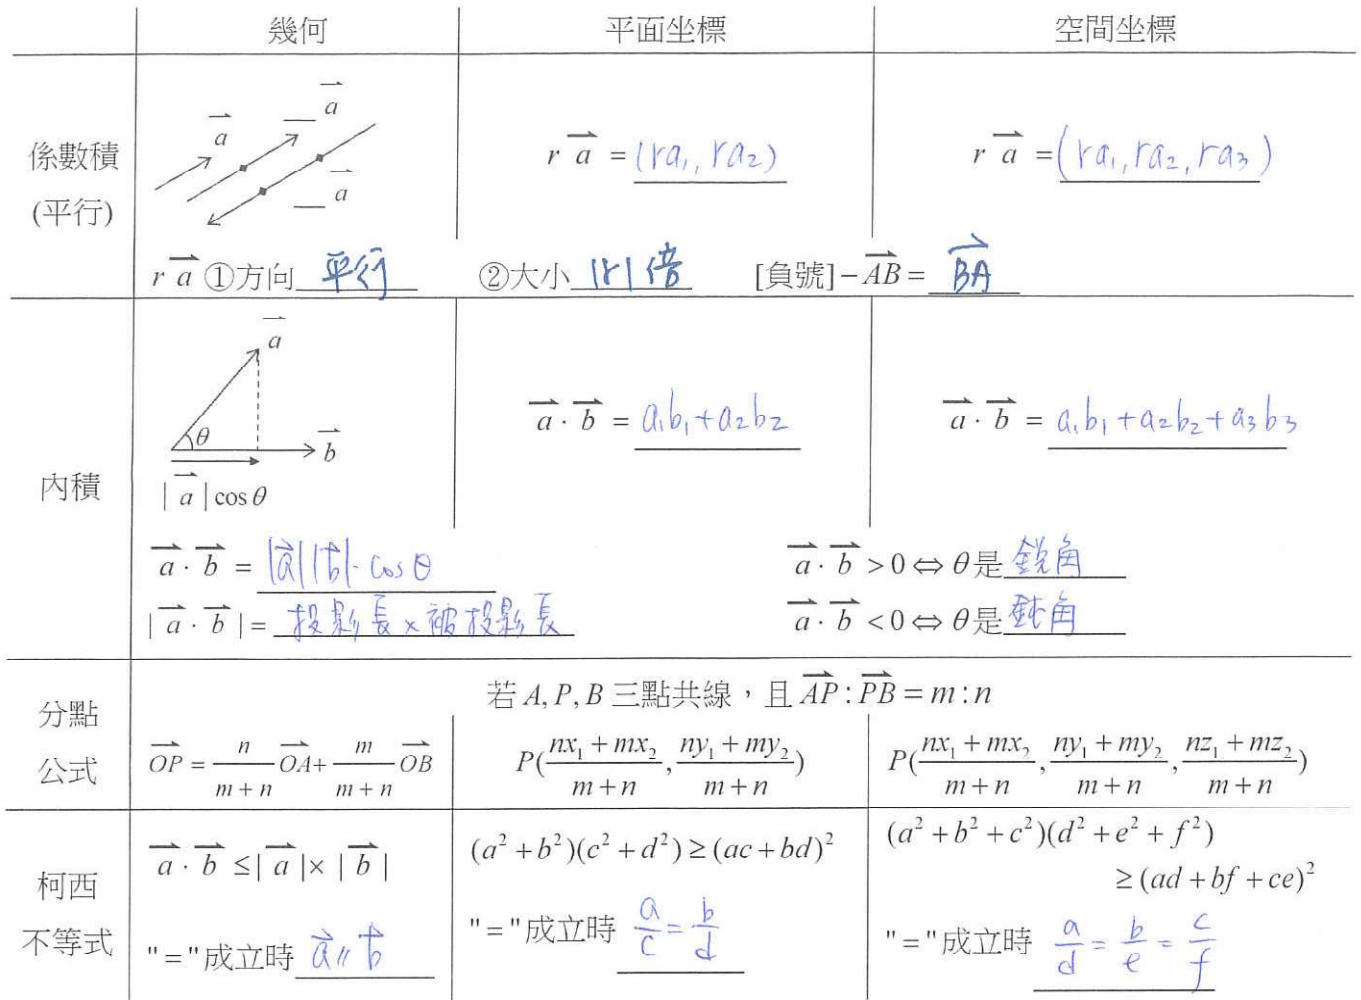 幾何 平面坐標 空間坐標
係數積
(平行)
a⃗ __ a⃗ __ a⃗
r a⃗ = (ra₁, ra₂)
r a⃗ = (ra₁, ra₂, ra₃)
r a⃗ ①方向 平行 ②大小 |r|倍 [負號]−AB⃗ = BA⃗
內積
a⃗
θ
b⃗
|a⃗|cosθ
a⃗·b⃗ = a₁b₁+a₂b₂
a⃗·b⃗ = a₁b₁+a₂b₂+a₃b₃
a⃗·b⃗ = |a⃗||b⃗|·cosθ a⃗·b⃗ > 0 ⇔ θ是 銳角
|a⃗·b⃗| = 投影長×被投影長 a⃗·b⃗ < 0 ⇔ θ是 鈍角
分點
公式
若 A, P, B 三點共線，且 AP⃗ : PB⃗ = m : n
OP⃗ = n/(m+n) OA⃗ + m/(m+n) OB⃗
P((nx₁+mx₂)/(m+n), (ny₁+my₂)/(m+n))
P((nx₁+mx₂)/(m+n), (ny₁+my₂)/(m+n), (nz₁+mz₂)/(m+n))
柯西
不等式
a⃗·b⃗ ≤ |a⃗|×|b⃗|
"="成立時 a⃗ // b⃗
(a²+b²)(c²+d²) ≥ (ac+bd)²
"="成立時 a/c = b/d
(a²+b²+c²)(d²+e²+f²)
≥ (ad+bf+ce)²
"="成立時 a/d = b/e = c/f